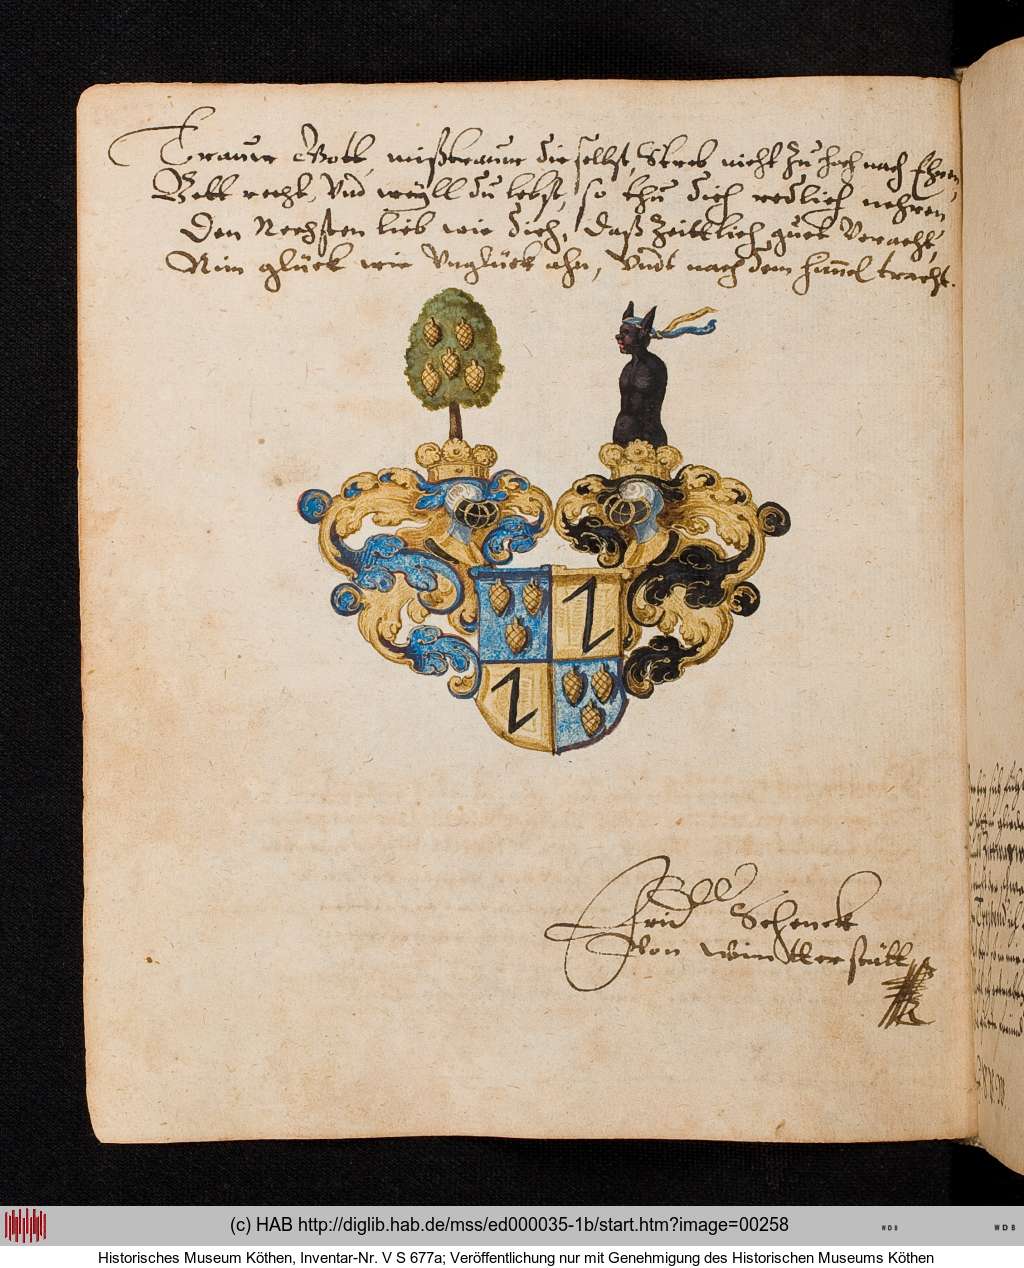 Trauw Gott, mißtrauw dir selbst, Streb nicht zu hoch nach Ehren,
Bett recht, Vnd weyll du lebst, so thu dich redlich nehren
Den Nechsten lieb wie dich, daß zeittlich guet Veracht,
Nim glück wie Vnglück ahn, Vndt nach dem himmel tracht.
Frid Schenck
Von Wintterstätt
(c) HAB http://diglib.hab.de/mss/ed000035-1b/start.htm?image=00258
WDB
WDB
Historisches Museum Köthen, Inventar-Nr. V S 677a; Veröffentlichung nur mit Genehmigung des Historischen Museums Köthen